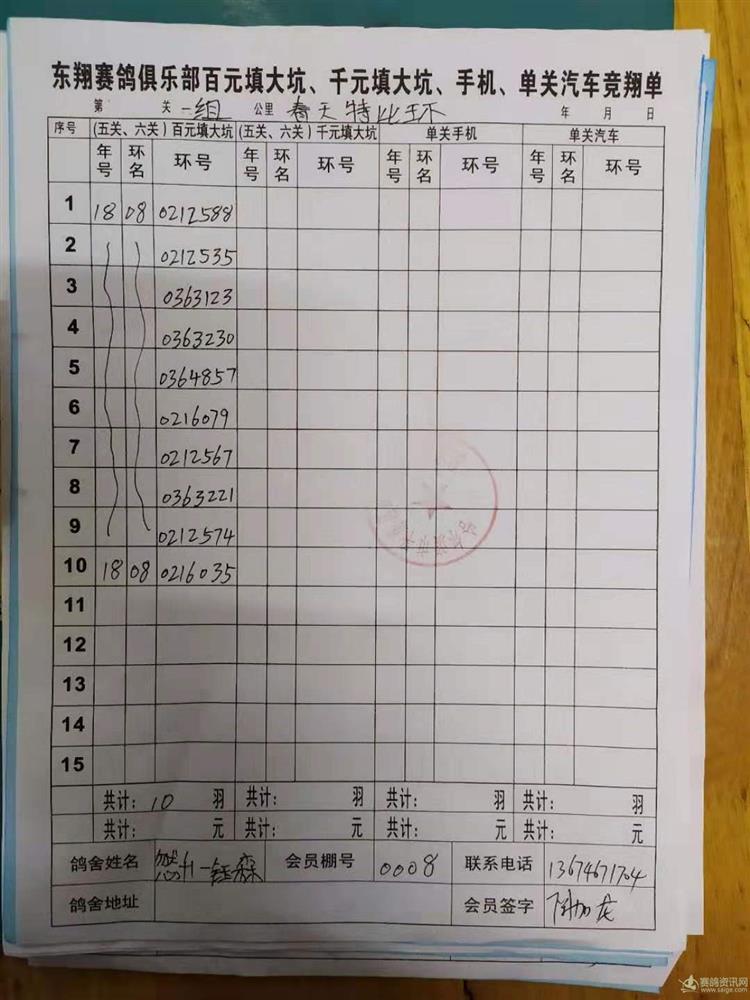 东翔赛鸽俱乐部百元填大坑、千元填大坑、手机、单关汽车竞翔单
第 关 一组 公里 春天特比环 年 月 日
序号 (五关、六关)百元填大坑 (五关、六关)千元填大坑 单关手机 单关汽车
年号 环名 环号 年号 环名 环号 年号 环名 环号 年号 环名 环号
1 18 08 0212588
2 0212535
3 0363123
4 0363230
5 0364857
6 0216079
7 0212567
8 0363221
9 0212574
10 18 08 0216035
11
12
13
14
15
共计: 10 羽 共计: 羽 共计: 羽 共计: 羽
共计: 元 共计: 元 共计: 元 共计: 元
鸽舍姓名 一钰森 会员棚号 0008 联系电话 13674671704
鸽舍地址 会员签字
赛鸽资讯网
www.saige.com